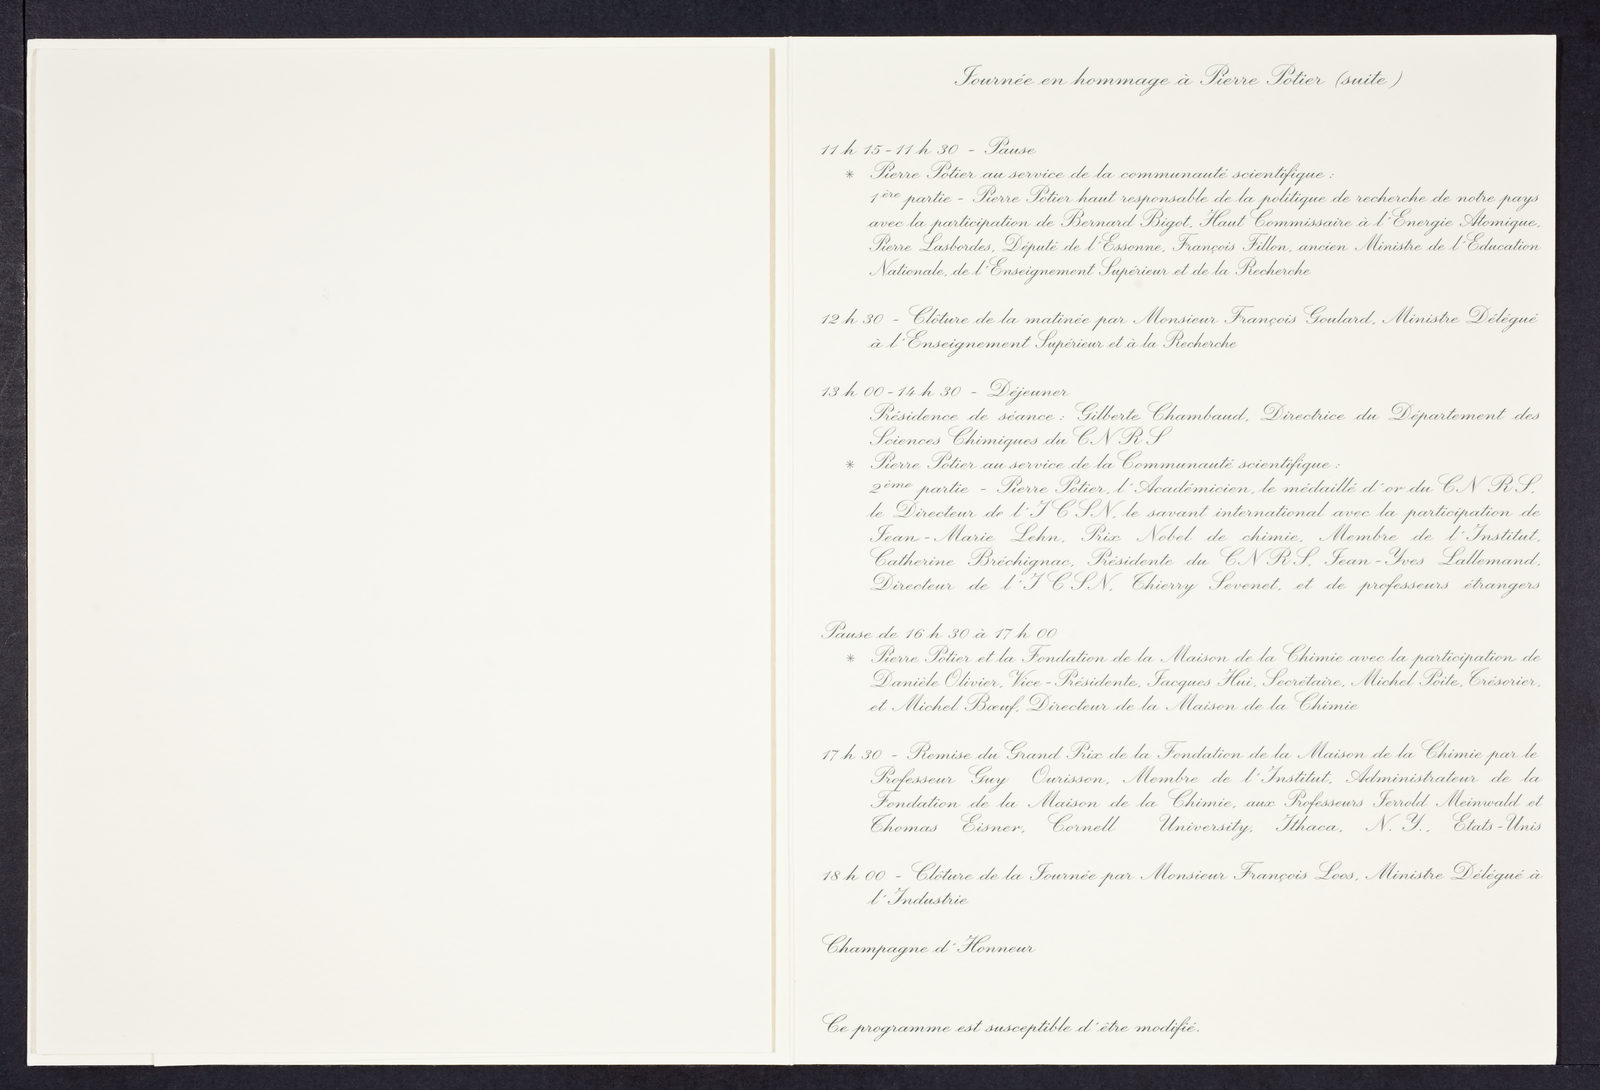 Journée en hommage à Pierre Potier (suite)
11 h 15 - 11 h 30 - Pause
* Pierre Potier au service de la communauté scientifique :
1ère partie - Pierre Potier haut responsable de la politique de recherche de notre pays
avec la participation de Bernard Bigot, Haut Commissaire à l'Energie Atomique,
Pierre Lasbordes, Député de l'Essonne, François Fillon, ancien Ministre de l'Education
Nationale, de l'Enseignement Supérieur et de la Recherche
12 h 30 - Clôture de la matinée par Monsieur François Goulard, Ministre Délégué
à l'Enseignement Supérieur et à la Recherche
13 h 00 - 14 h 30 - Déjeuner
Présidence de séance : Gilberte Chambaud, Directrice du Département des
Sciences Chimiques du C N R S
* Pierre Potier au service de la Communauté scientifique :
2ème partie - Pierre Potier, l'Académicien, le médaillé d'or du C N R S,
le Directeur de l'I C S N, le savant international avec la participation de
Jean - Marie Lehn, Prix Nobel de chimie, Membre de l'Institut,
Catherine Bréchignac, Présidente du C N R S, Jean - Yves Lallemand,
Directeur de l'I C S N, Thierry Sevenet, et de professeurs étrangers
Pause de 16 h 30 à 17 h 00
* Pierre Potier et la Fondation de la Maison de la Chimie avec la participation de
Danièle Olivier, Vice - Présidente, Jacques Hui, Secrétaire, Michel Poite, Trésorier,
et Michel Bœuf, Directeur de la Maison de la Chimie
17 h 30 - Remise du Grand Prix de la Fondation de la Maison de la Chimie par le
Professeur Guy Ourisson, Membre de l'Institut, Administrateur de la
Fondation de la Maison de la Chimie, aux Professeurs Jerrold Meinwald et
Thomas Eisner, Cornell University, Ithaca, N. Y., Etats - Unis
18 h 00 - Clôture de la Journée par Monsieur François Loos, Ministre Délégué à
l'Industrie
Champagne d'Honneur
Ce programme est susceptible d'être modifié.